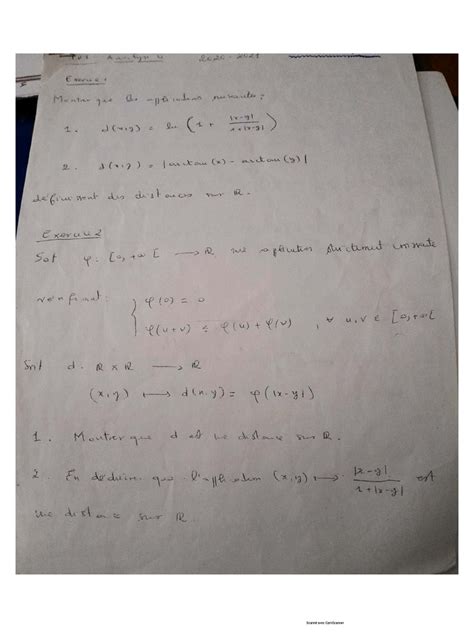 Analyse 4 2020-2021
Exercice 1
Montrer que les applications suivantes :
1. d(x,y) = ln ( 1 + |x-y| / 1+|x-y| )
2. d(x,y) = |arctan(x) - arctan(y)|
définissent des distances sur ℝ.
Exercice 2
Soit φ : [0, +∞[ ⟶ ℝ, une application strictement croissante
vérifiant : { φ(0) = 0
φ(u+v) ≤ φ(u) + φ(v) , ∀ u,v ∈ [0, +∞[
Soit d : ℝ × ℝ ⟶ ℝ
(x,y) ⟼ d(x,y) = φ(|x-y|)
1. Montrer que d est une distance sur ℝ.
2. En déduire que l'application (x,y) ⟼ |x-y| / 1+|x-y| est
une distance sur ℝ.
Scanned with CamScanner